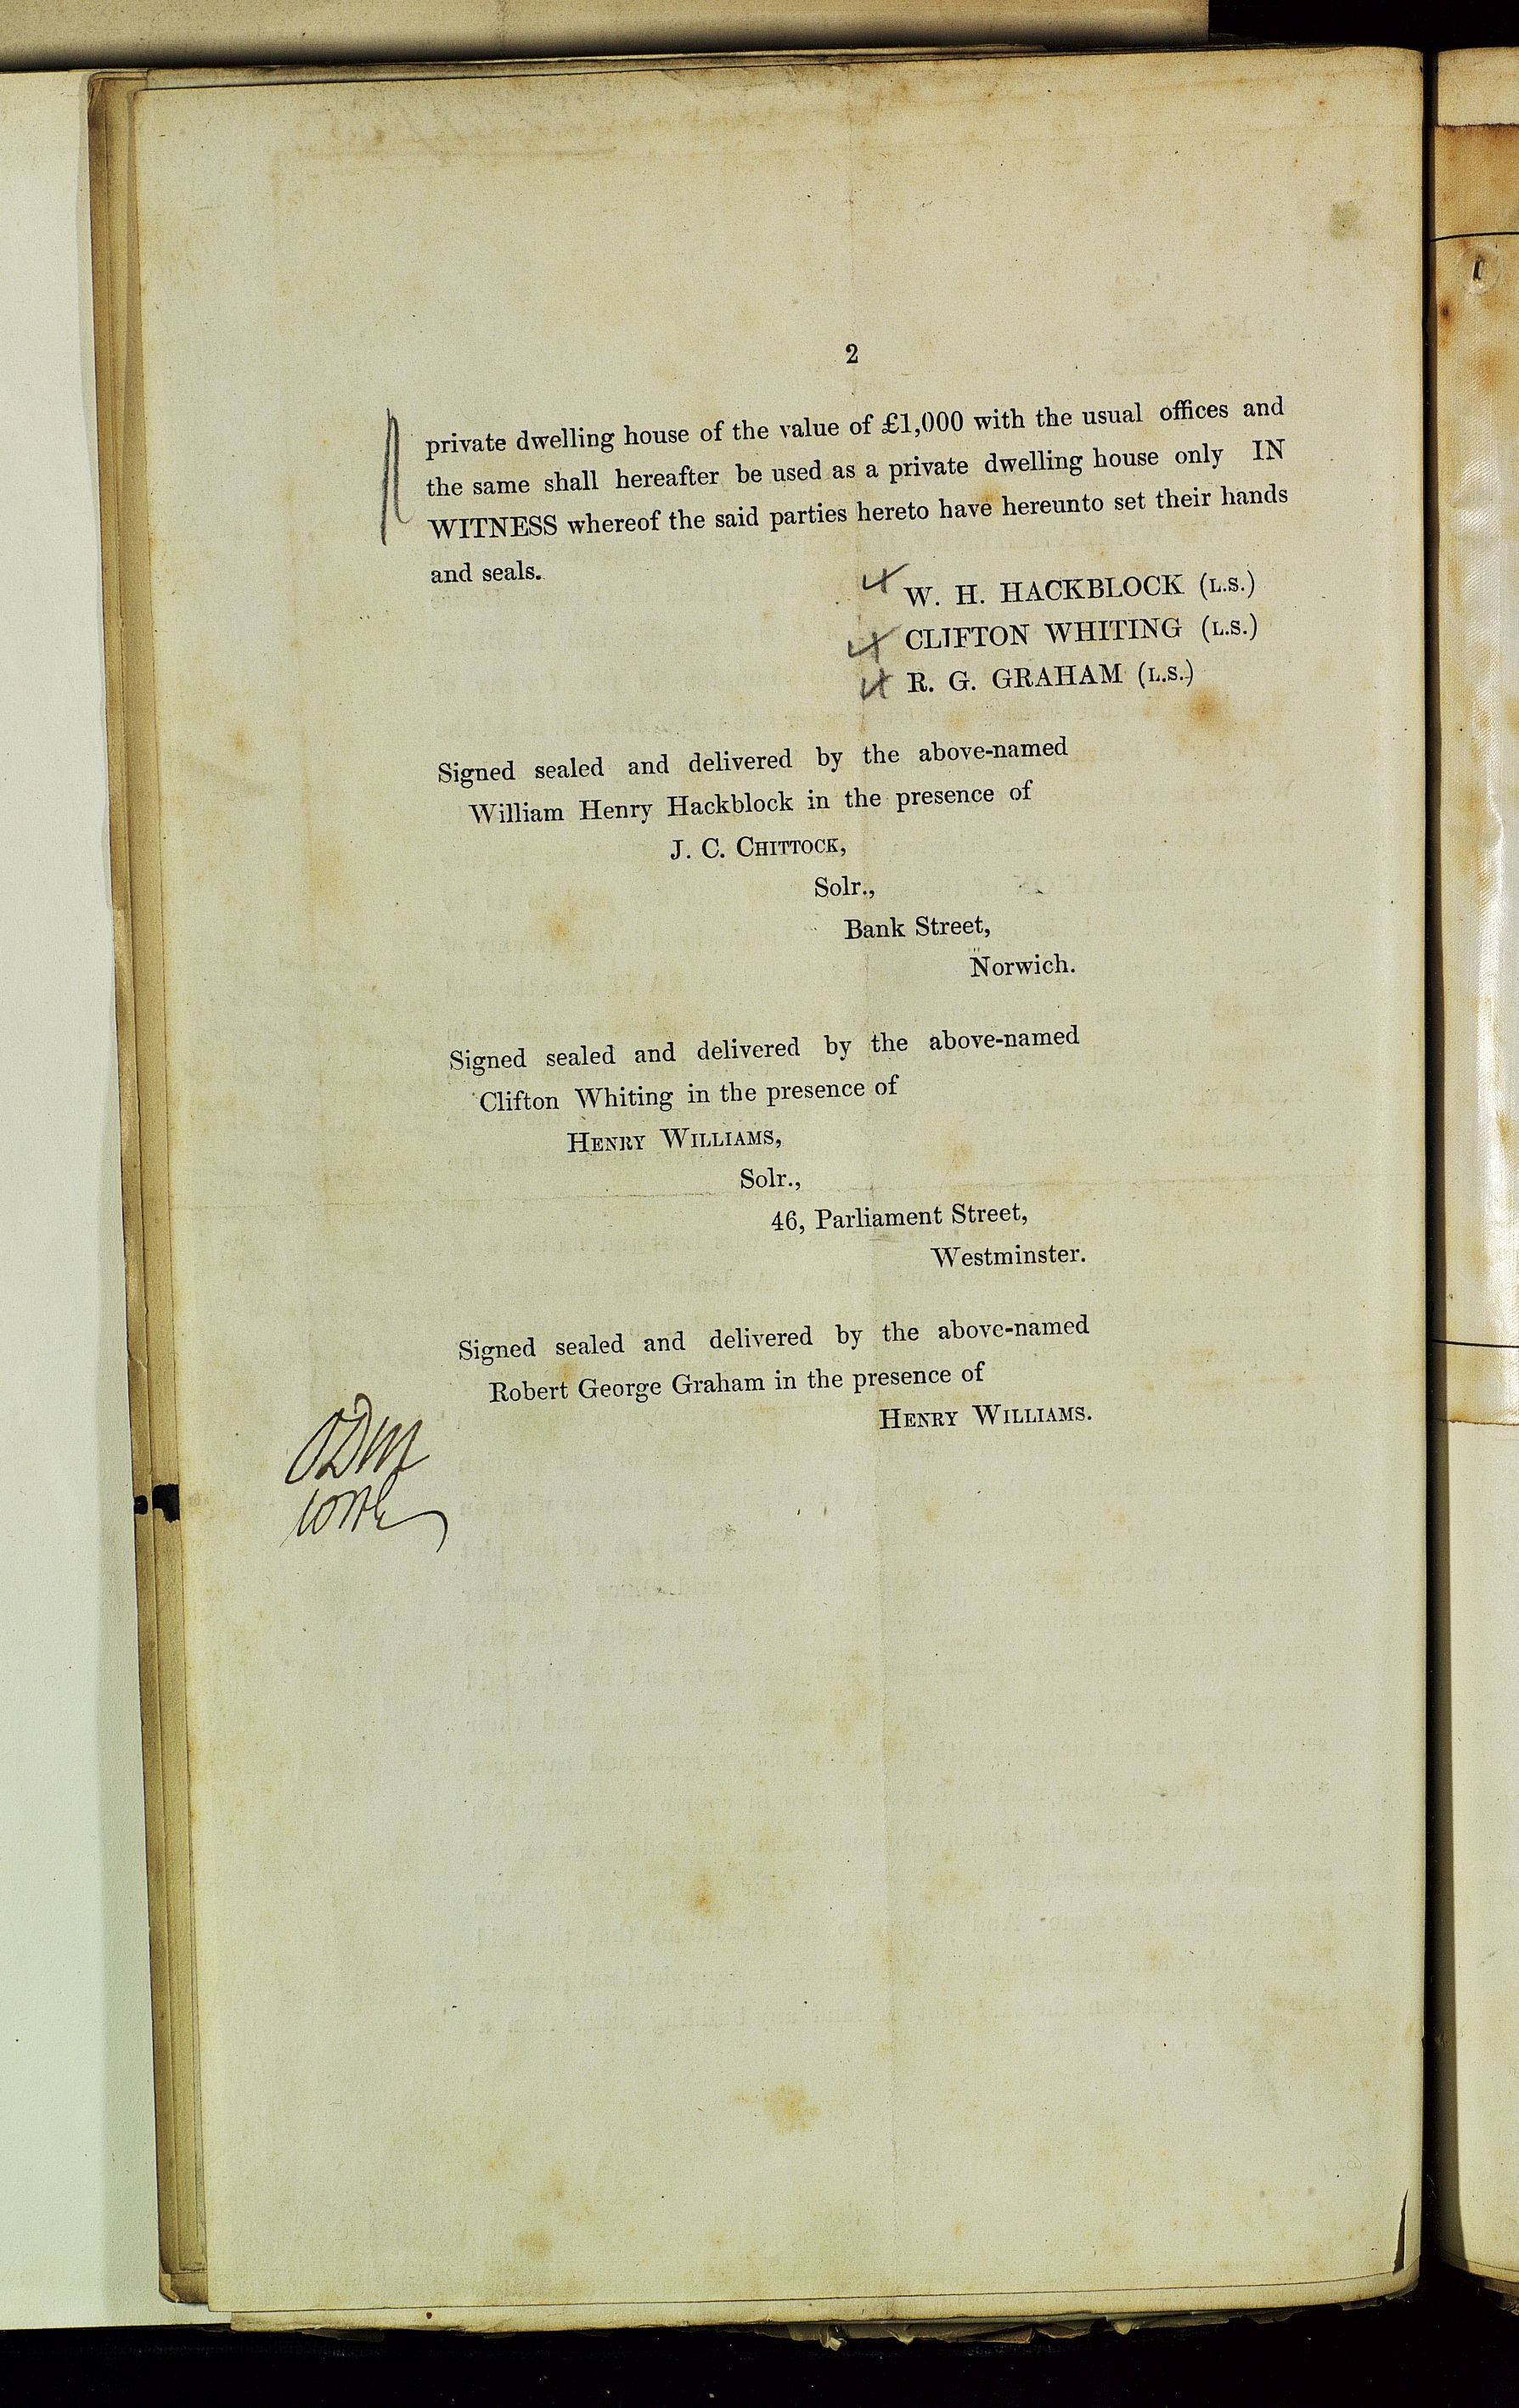 2
private dwelling house of the value of £1,000 with the usual offices and
the same shall hereafter be used as a private dwelling house only IN
WITNESS whereof the said parties hereto have hereunto set their hands
and seals.
W. H. HACKBLOCK (L.S.)
CLIFTON WHITING (L.S.)
R. G. GRAHAM (L.S.)
Signed sealed and delivered by the above-named
William Henry Hackblock in the presence of
J. C. CHITTOCK,
Solr.,
Bank Street,
Norwich.
Signed sealed and delivered by the above-named
Clifton Whiting in the presence of
HENRY WILLIAMS,
Solr.,
46, Parliament Street,
Westminster.
Signed sealed and delivered by the above-named
Robert George Graham in the presence of
HENRY WILLIAMS.